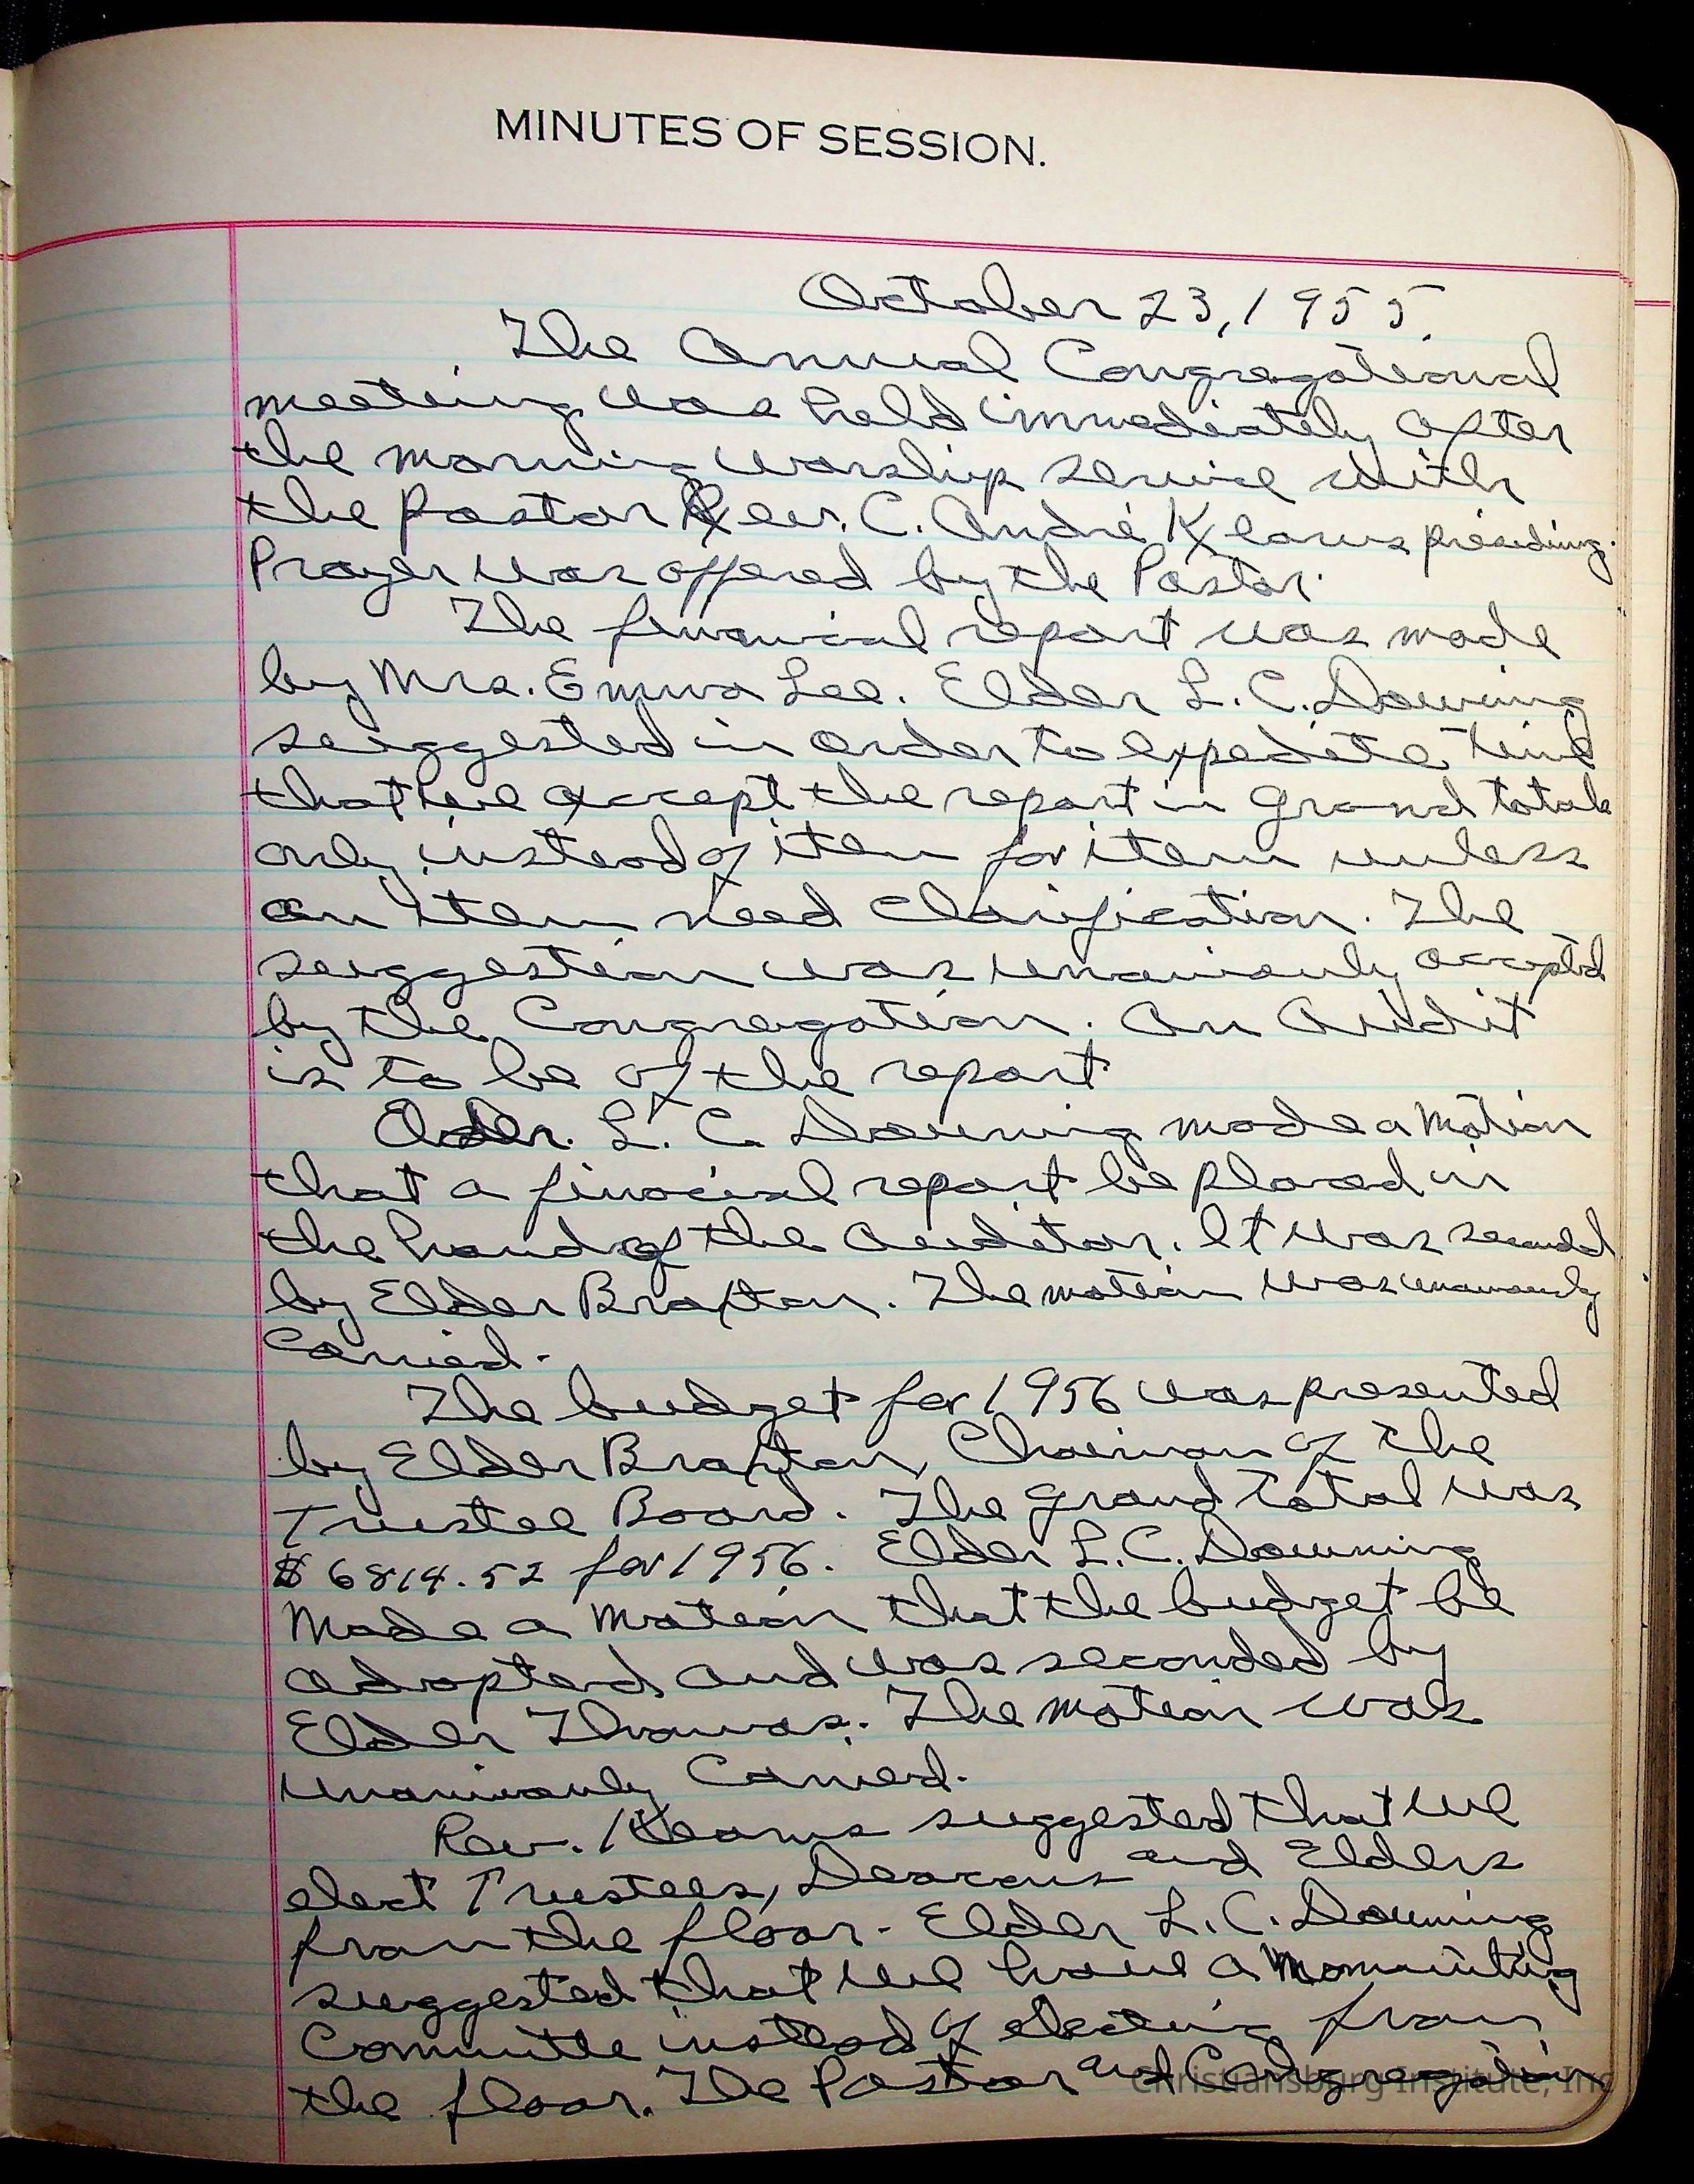 MINUTES OF SESSION.
October 23, 1955.
The Annual Congregational
meeting was held immediately after
the morning worship service with
the Pastor Rev. C. André Kearns presiding.
Prayer was offered by the Pastor.
The financial report was made
by Mrs. Emma Lee. Elder L. C. Downing
suggested in order to expedite time
that we accept the report in grand totals
only instead of item for item unless
an item need clarification. The
suggestion was unaniously accepted
by the Congregation. An Audit
is to be of the report
Elder. L. C. Downing made a motion
that a finacial report be placed in
the hand of the auditor. It was seconded
by Elder Braxton. The motion was unaniously
Carried.
The budget for 1956 was presented
by Elder Braxton, Chairman of the
Trustee Board. The grand total was
$ 6814.52 for 1956. Elder L. C. Downing
made a motion that the budget be
adopted and was seconded by
Elder Thomas. The motion was
unaniously Carried.
Rev. Kearns suggested that we
elect Trustees, Deacons and Elders
from the floor. Elder L. C. Downing
suggested that we have a Nominating
Committe instead of electing from
the floor. The Pastor and Congregation
Christiansburg Institute, Inc